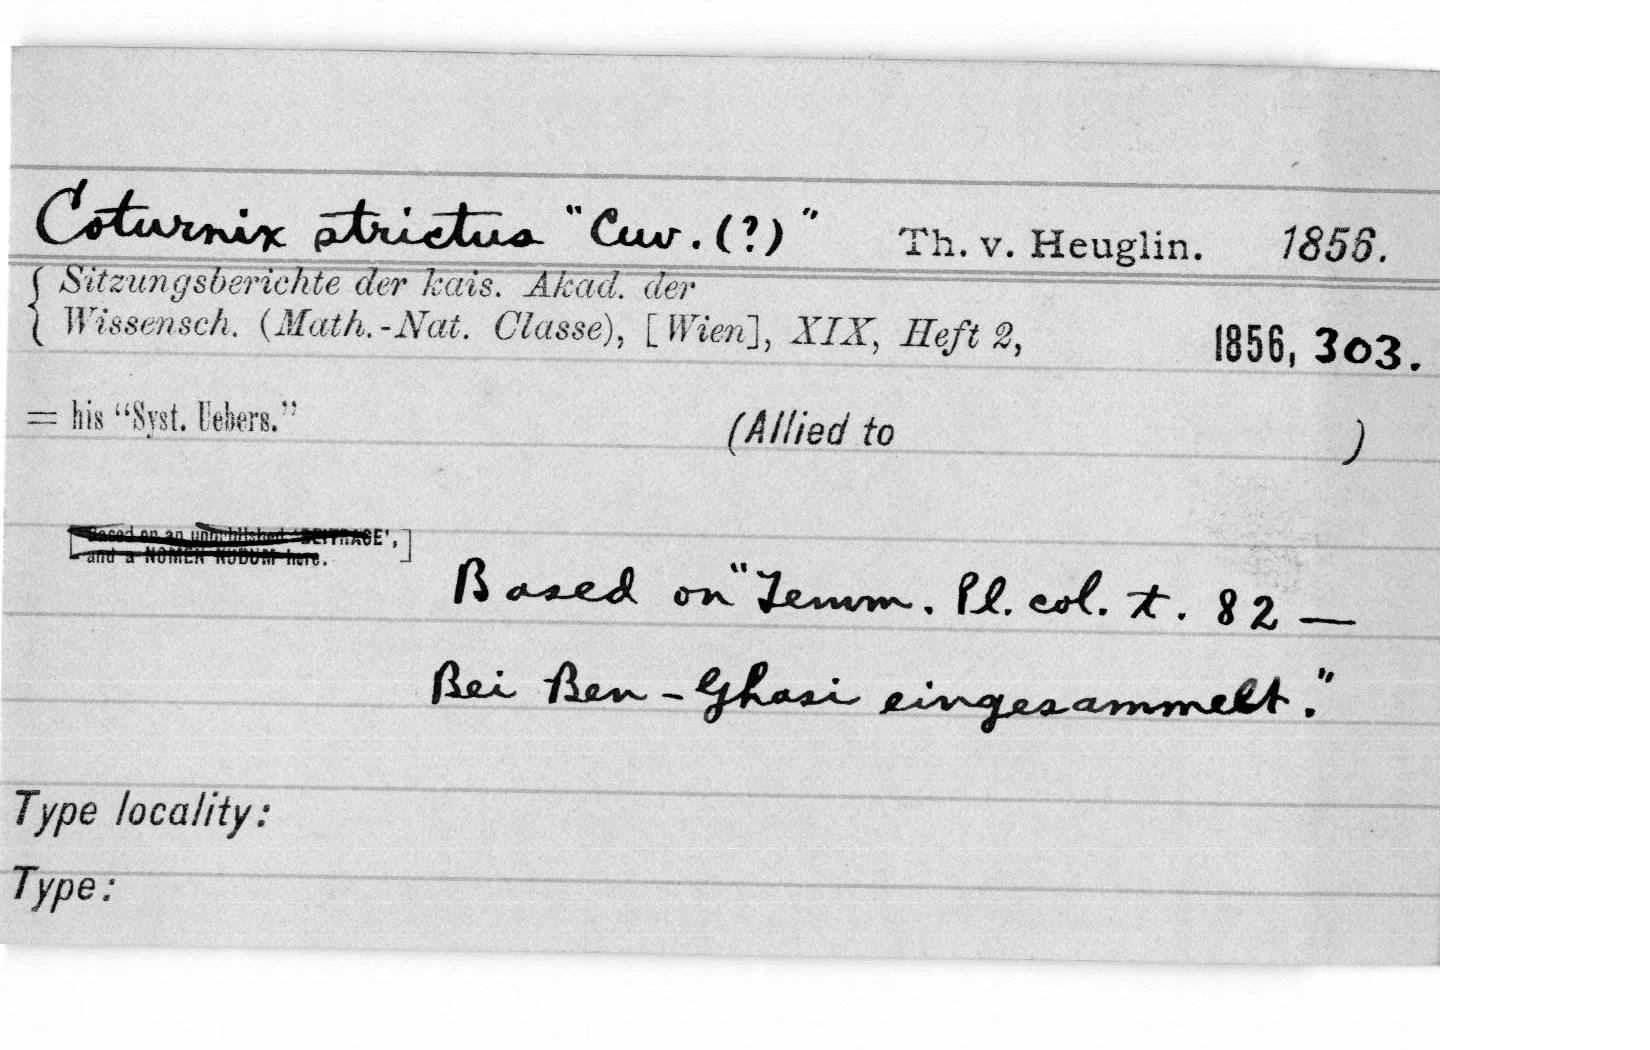 Coturnix strictus "Cuv. (?)" Th. v. Heuglin. 1856.
Sitzungsberichte der kais. Akad. der
Wissensch. (Math.-Nat. Classe), [Wien], XIX, Heft 2, 1856, 303.
= his "Syst. Uebers." (Allied to )
[Based on an unpublished 'BEITRAGE',
and a NOMEN NUDUM here.]
Based on "Temm. Pl. col. t. 82 —
Bei Ben-Ghasi eingesammelt."
Type locality:
Type: